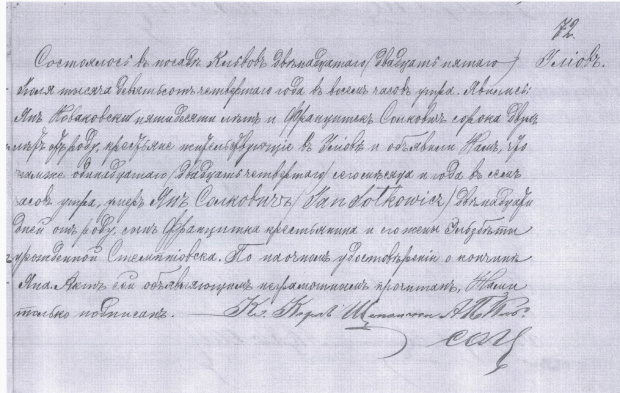 72.
Улiовъ.
Состоялось въ посадѣ двѣнадцатаго /двадцать пятаго/
Iюля тысяча девятьсотъ четвертаго года въ восемь часовъ утра. Явились
Янъ Новаковски пятидесяти лѣтъ и Францишекъ Солковичъ сорока двухъ
лѣтъ отъ роду, крестьяне жительствующiе въ Улiовѣ и объявили Намъ, что
одинадцатаго /двадцать четвертаго/ сего мѣсяца и года въ семь
часовъ утра, умеръ Янъ Солковичъ /Jan Sołkowicz/ двѣнадцати
дней отъ роду, сынъ Францишка крестьянина и его жены Эльзбѣты
урожденной. По наочномъ удостовѣренiи о кончинѣ
Яна. Актъ сей объявляющимъ неграмотнымъ прочитанъ, Нами
только подписанъ. Кс. Кароль